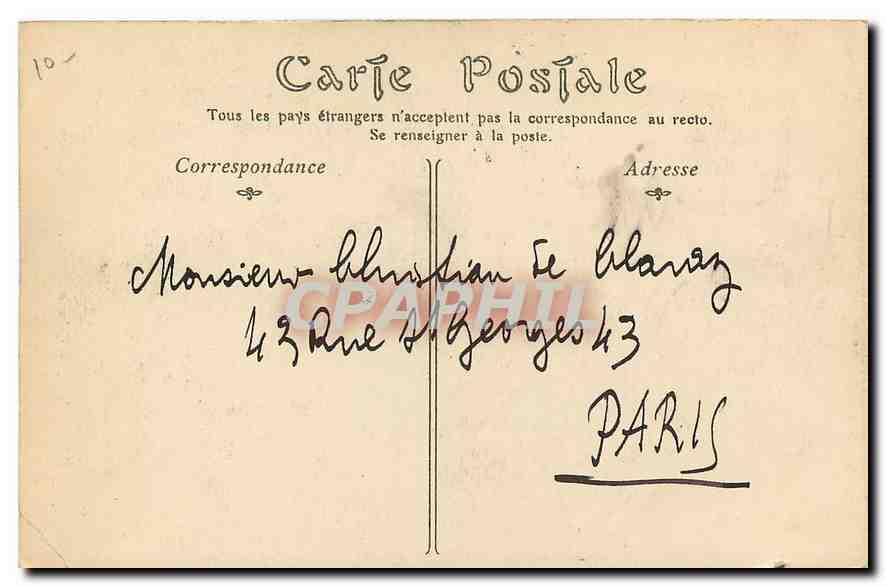 10-
Carte Postale
Tous les pays étrangers n'acceptent pas la correspondance au recto.
Se renseigner à la poste.
Correspondance
Adresse
Monsieur Christian de
CPAPHIL
43 Rue St Georges 43
PARIS